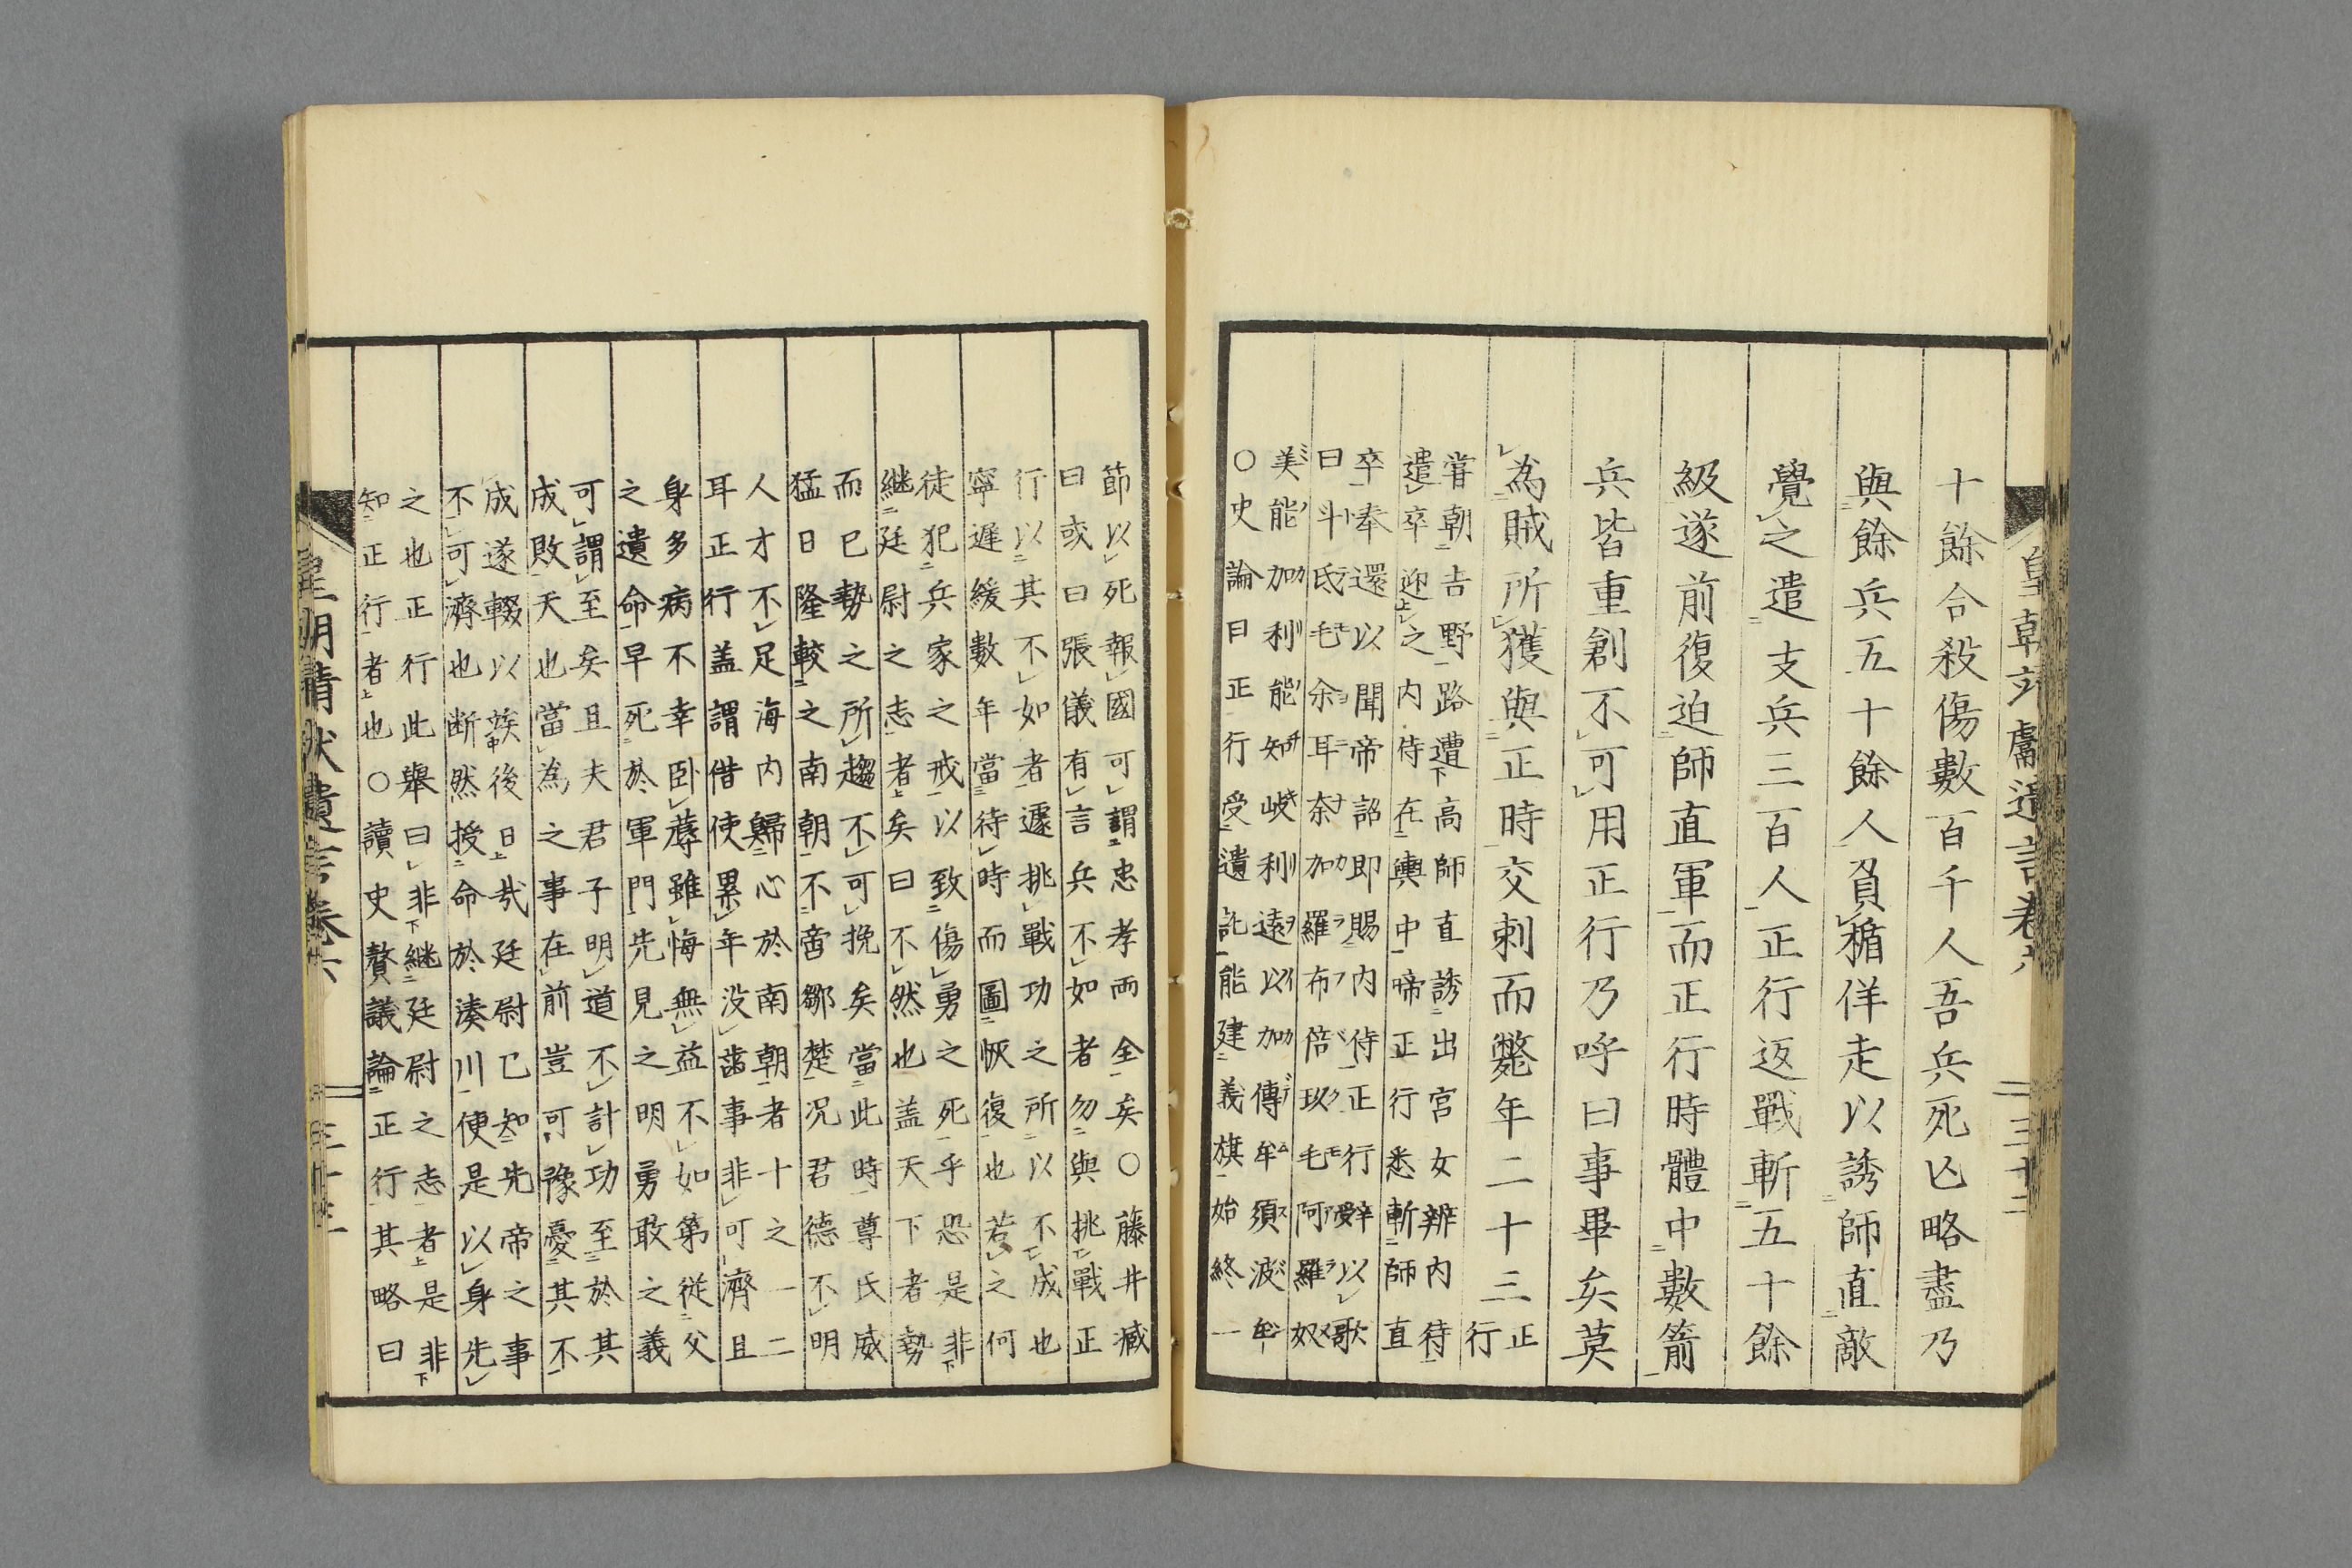 十餘合殺傷數百千人吾兵死亾略盡乃
與餘兵五十餘人負楯佯走以誘師直敵
覺之遣支兵三百人正行返戰斬五十餘
級遂前復迫師直軍而正行時體中數箭
兵皆重創不可用正行乃呼曰事畢矣莫
為賊所獲與正時交刺而斃年二十三正
行
嘗朝吉野路遭高師直誘出宮女辨内待
遣卒迎之内侍在輿中啼正行悉斬師直
卒奉還以聞帝詔即賜内侍正行辤以歌
曰斗氐毛余耳奈加羅布倍玖毛阿羅奴
美能加利能知岐利遠以加傳牟須波牟
○史論曰正行受遺託能建義旗始終一
節以死報國可謂忠孝両全矣○藤井臧
曰或曰張儀有言兵不如者勿與挑戰正
行以其不如者遽挑戰功之所以不成也
寧遲緩數年當待時而圖恢復也若之何
徒犯兵家之戒以致傷勇之死乎恐是非
継廷尉之志者矣曰不然也盖天下者勢
而已勢之所趨不可挽矣當此時尊氏威
猛日隆較之南朝不啻鄒楚况君德不明
人才不足海内歸心於南朝者十之一二
耳正行盖謂借使累年没齒事非可濟且
身多病不幸卧蓐雖悔無益不如第從父
之遺命早死於軍門先見之明勇敢之義
可謂至矣且夫君子明道不計功至於其
成敗天也當為之事在前豈可豫憂其不
成遂輟以竢後日哉廷尉已知先帝之事
不可濟也断然授命於湊川使是以身先
之也正行此舉曰非継廷尉之志者是非
知正行者也○讀史贅議論正行其略曰
皇朝靖献遺言卷六